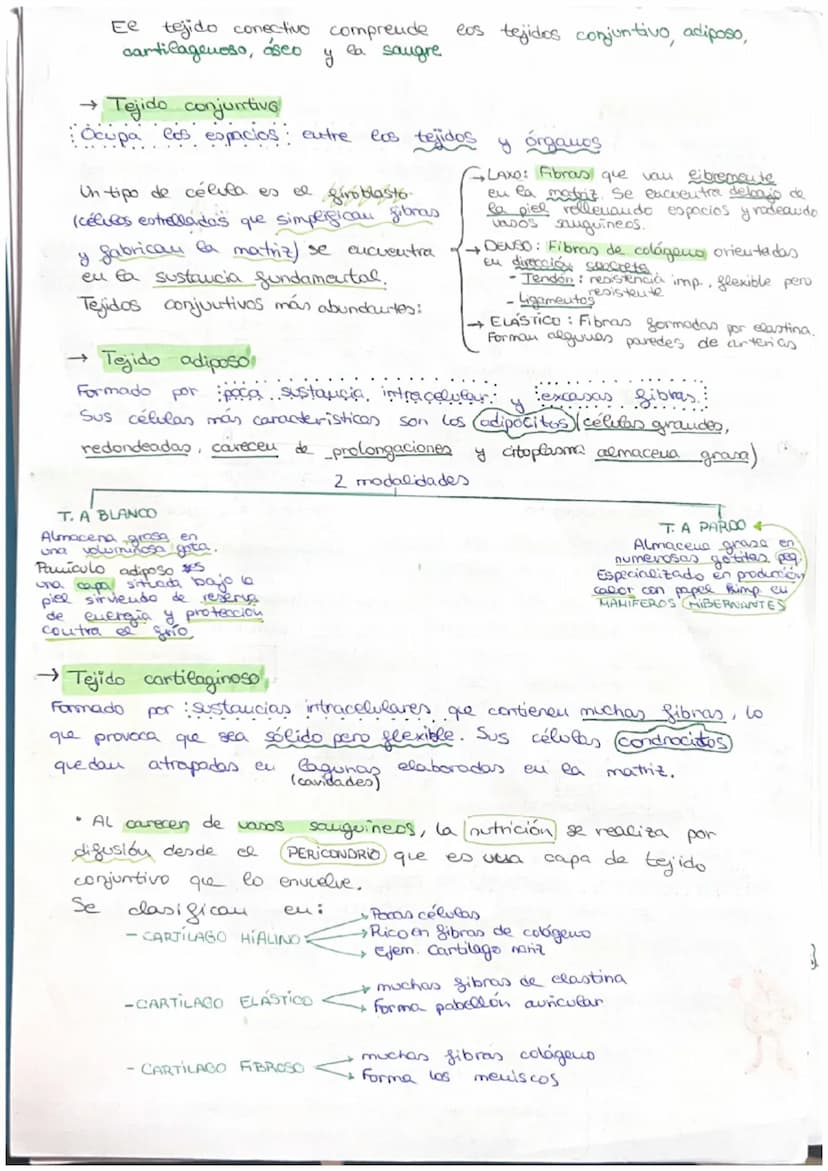 El tejido conectivo comprende los tejidos conjuntivo, adiposo,
cartilagenoso, óseo y la sangre
→ Tejido conjuntivo
Ocupa los espacios entre los tejidos y órganos
Un tipo de célula es el firoblasto
(células estrelladas que simplifican fibras
y fabrican la matriz) se encuentra
en la sustancia fundamental.
Tejidos conjuntivos más abundantes:
→ LAXO: Fibras que van libremente
en la matriz. Se encuentra debajo de
la piel rellenando espacios y rodeando
vasos sanguíneos.
→ DENSO: Fibras de colágeno orientadas
en dirección
- Tendón: resistencia imp., flexible pero
resistente
- Ligamentos
→ ELÁSTICO: Fibras formadas por elastina.
Forman algunas paredes de arterias
→ Tejido adiposo
Formado por poca sustancia intracelular y excasas fibras
Sus células más características son los adipocitos (células grandes,
redondeadas, carecen de prolongaciones y citoplasma almacena grasa)
2 modalidades
T. A BLANCO
Almacena grasa en
una voluminosa gota.
Panículo adiposo es
una capa situada bajo la
piel sirviendo de reserva
de energía y protección
contra el frío
T. A PARDO
Almacena grasa en
numerosas gotitas peq
Especializado en producción
calor con papel imp en
MAMIFEROS HIBERNANTES
→ Tejido cartilaginoso
Formado por sustancias intracelulares que contienen muchas fibras, lo
que provoca que sea sólido pero flexible. Sus células condrocitos
quedan atrapadas en lagunas elaboradas en la matriz.
(cavidades)
• Al carecer de vasos sanguíneos, la nutrición se realiza por
difusión desde el PERICONDRIO que es una capa de tejido
conjuntivo que lo envuelve.
Se clasifican en:
- CARTÍLAGO HIALINO
→ Pocas células
→ Rico en fibras de colágeno
→ Ejem. Cartílago nariz
- CARTÍLAGO ELÁSTICO
→ muchas fibras de elastina
→ Forma pabellón auricular
- CARTÍLAGO FIBROSO
→ muchas fibras colágeno
→ Forma los meniscos